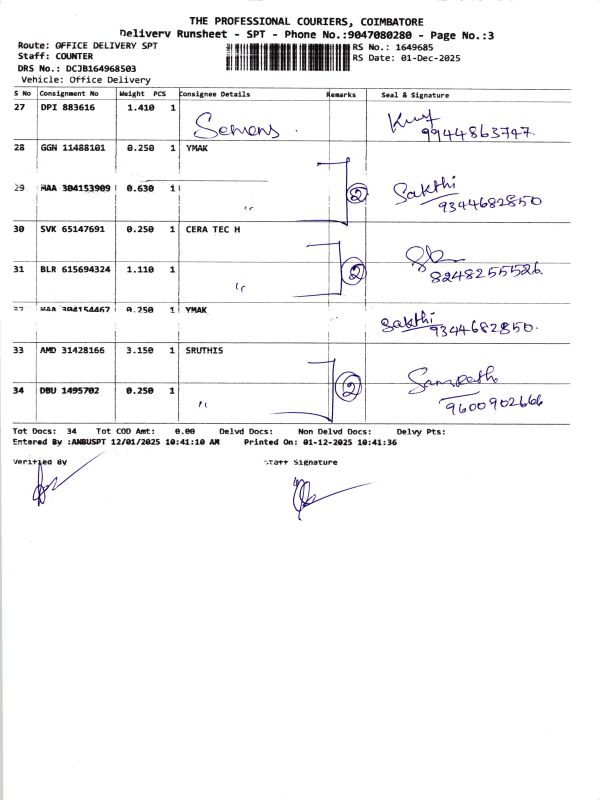 THE PROFESSIONAL COURIERS, COIMBATORE
Delivery Runsheet - SPT - Phone No.:9047080280 - Page No.:3
Route: OFFICE DELIVERY SPT RS No.: 1649685
Staff: COUNTER RS Date: 01-Dec-2025
DRS No.: DCJB164968503
Vehicle: Office Delivery
S No Consignment No Weight PCS Consignee Details Remarks Seal & Signature
27 DPI 883616 1.410 1
9944863747.
28 GGN 11488101 0.250 1 YMAK
29 MAA 304153909 0.630 1 " 2 Sakthi
9344682850
30 SVK 65147691 0.250 1 CERA TEC H
31 BLR 615694324 1.110 1 " 2 8248255526.
32 MAA 304154467 0.250 1 YMAK
Sakthi 9344682850.
33 AMD 31428166 3.150 1 SRUTHIS
34 DBU 1495702 0.250 1 " 2 Sampath
9600902666
Tot Docs: 34 Tot COD Amt: 0.00 Delvd Docs: Non Delvd Docs: Delvy Pts:
Entered By :ANBUSPT 12/01/2025 10:41:10 AM Printed On: 01-12-2025 10:41:36
Verified By Staff Signature